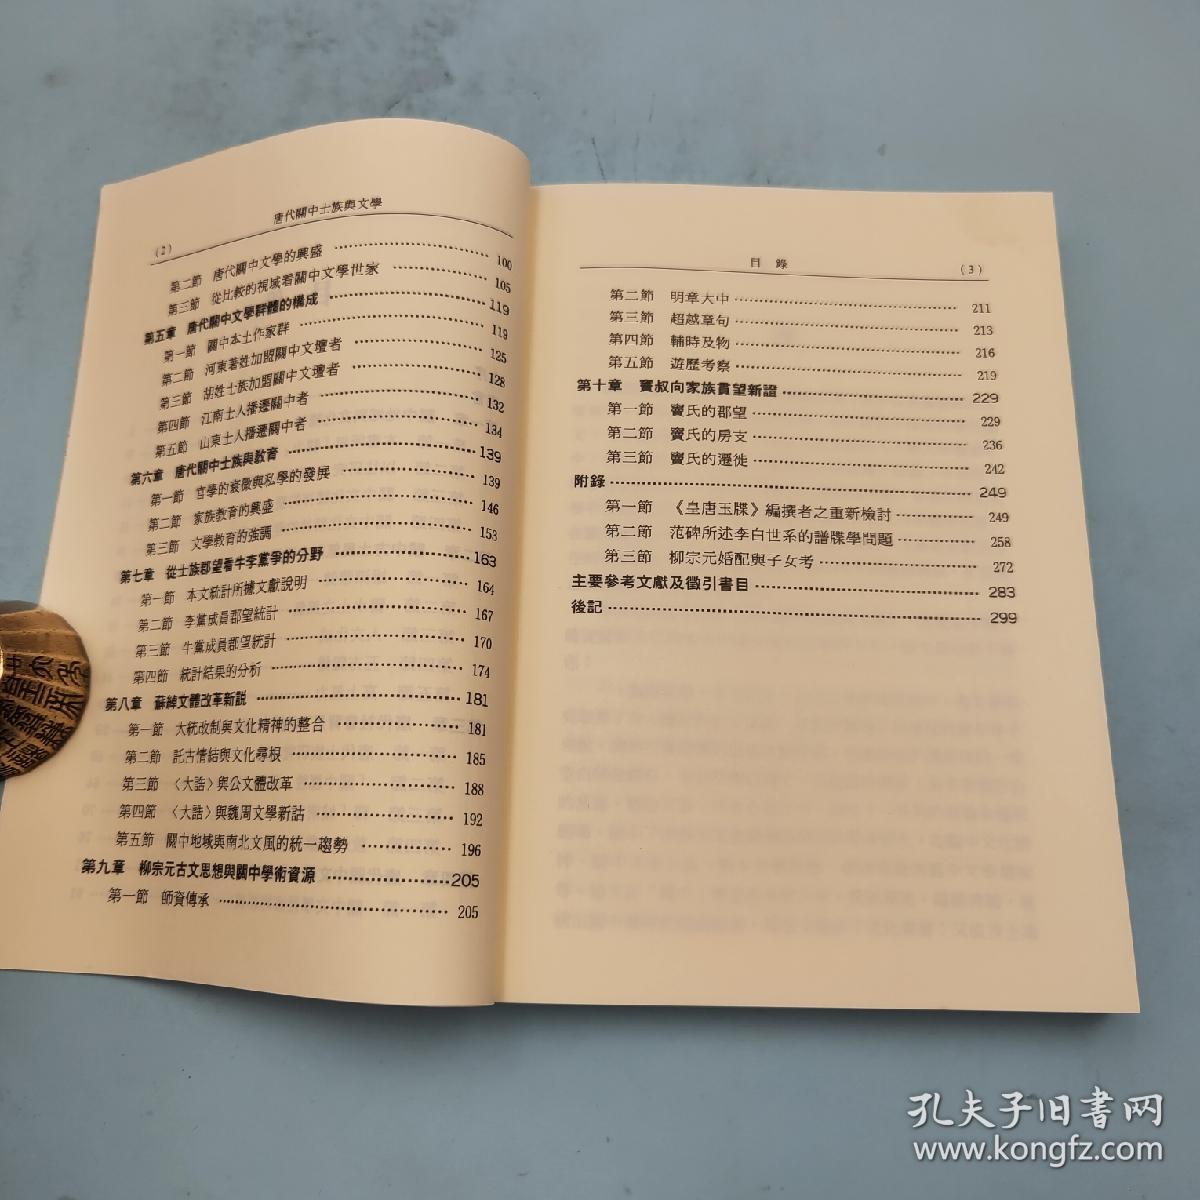 唐代關中士族與文學
(2)
第二節 唐代關中文學的興盛 100
第三節 從比較的視域看關中文學世家 105
第五章 唐代關中文學群體的構成 119
第一節 關中本土作家群 119
第二節 河東著姓加盟關中文壇者 125
第三節 胡姓士族加盟關中文壇者 128
第四節 江南士人播遷關中者 132
第五節 山東士人播遷關中者 134
第六章 唐代關中士族與教育 139
第一節 官學的衰微與私學的發展 139
第二節 家族教育的興盛 146
第三節 文學教育的強調 153
第七章 從士族郡望看牛李黨爭的分野 163
第一節 本文統計所據文獻說明 164
第二節 李黨成員郡望統計 167
第三節 牛黨成員郡望統計 170
第四節 統計結果的分析 174
第八章 蘇綽文體改革新説 181
第一節 大統改制與文化精神的整合 181
第二節 託古情結與文化尋根 185
第三節 〈大誥〉與公文體改革 188
第四節 〈大誥〉與魏周文學新詁 192
第五節 關中地域與南北文風的統一趨勢 196
第九章 柳宗元古文思想與關中學術資源 205
第一節 師資傳承 205
目錄 (3)
第二節 明章大中 211
第三節 超越章句 213
第四節 輔時及物 216
第五節 遊歷考察 219
第十章 竇叔向家族貫望新證 229
第一節 竇氏的郡望 229
第二節 竇氏的房支 236
第三節 竇氏的遷徙 242
附錄 249
第一節 《皇唐玉牒》編撰者之重新檢討 249
第二節 范碑所述李白世系的譜牒學問題 258
第三節 柳宗元婚配與子女考 272
主要參考文獻及徵引書目 283
後記 299
孔夫子旧書网
www.kongfz.com